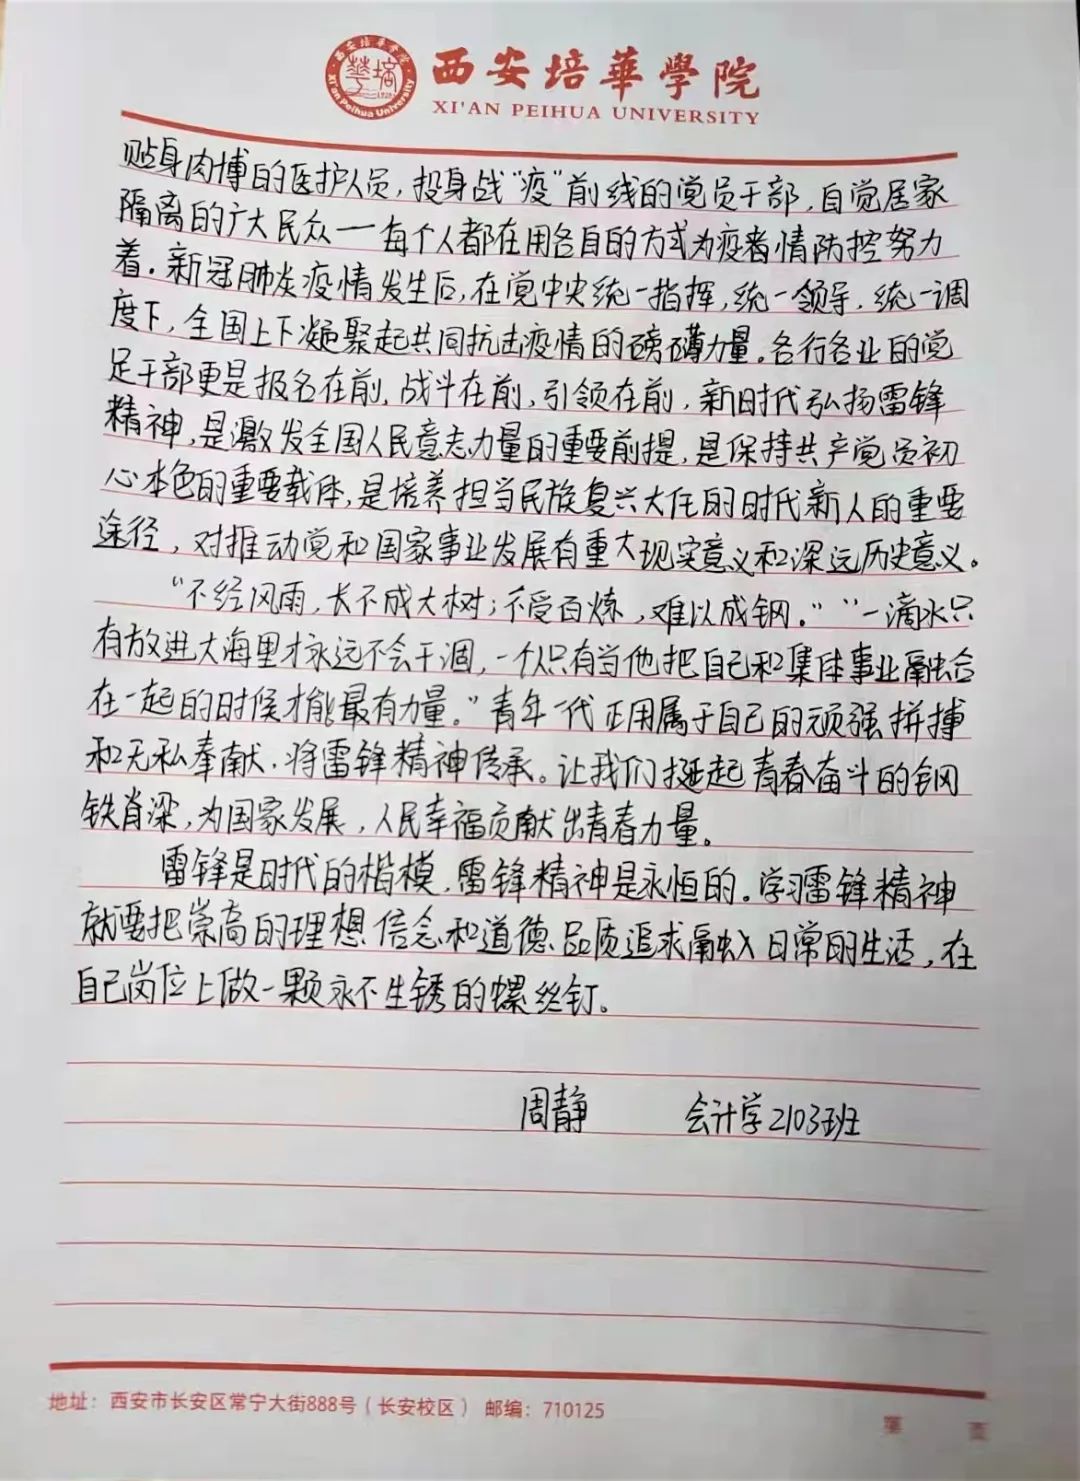 西安培華學院
XI'AN PEIHUA UNIVERSITY
贴身肉博的医护人员，投身战“疫”前线的党员干部，自觉居家
隔离的广大民众一一每个人都在用各自的方式为疫情防控努力
着.新冠肺炎疫情发生后,在党中央统一指挥,统一领导,统一调
度下,全国上下凝聚起共同抗击疫情的磅礴力量。各行各业的党
足干部更是报名在前,战斗在前,引领在前,新时代弘扬雷锋
精神,是激发全国人民意志力量的重要前提,是保持共产党员初
心本色的重要载体,是培养担当民族复兴大任的时代新人的重要
途径，对推动党和国家事业发展有重大现实意义和深远历史意义。
“不经风雨,长不成大树;不受百炼,难以成钢。”“一滴水只
有放进大海里才永远不会干涸,一个人只有当他把自己和集体事业融合
在一起的时候才能最有力量。”青年一代正用属于自己的顽强拼搏
和无私奉献.将雷锋精神传承。让我们挺起青春奋斗的钢
铁脊梁,为国家发展,人民幸福贡献出青春力量。
雷锋是时代的楷模,雷锋精神是永恒的。学习雷锋精神
就要把崇高的理想信念和道德品质追求融入日常的生活,在
自己岗位上做一颗永不生锈的螺丝钉。
周静 会计学2103班
地址：西安市长安区常宁大街888号（长安校区） 邮编：710125
第 页